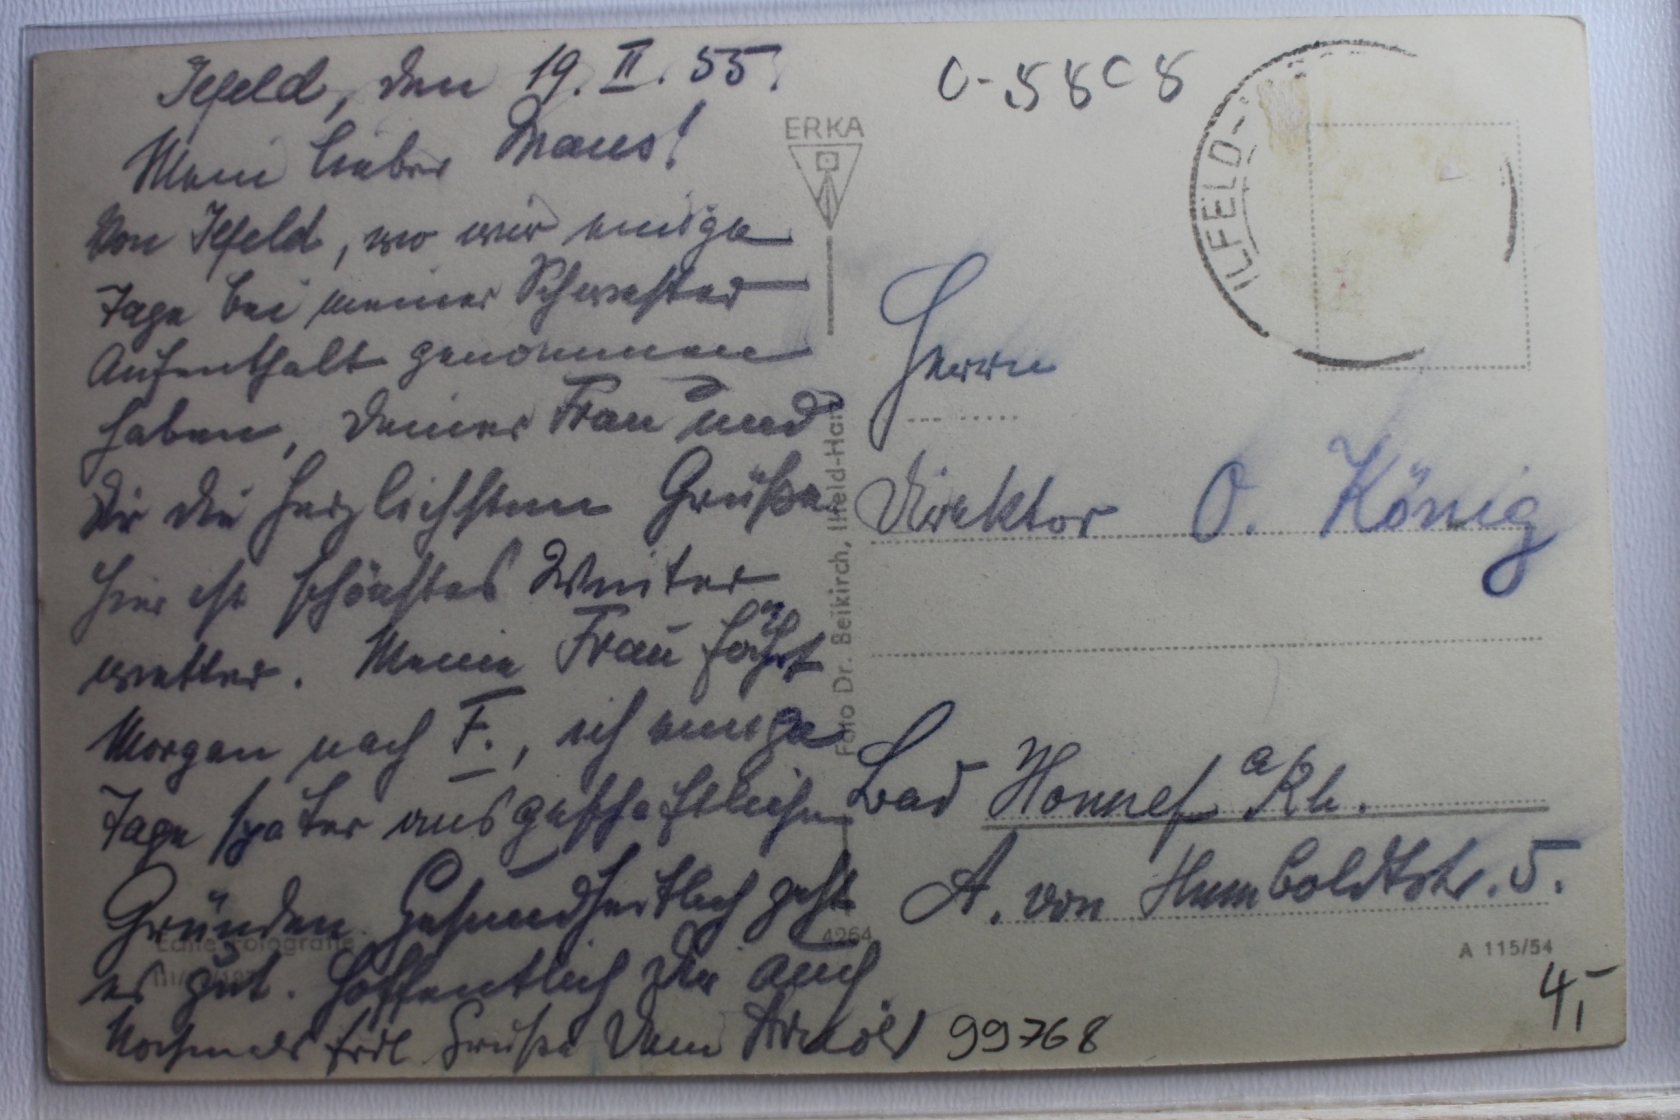 Ilfeld, den 19. II. 55.
Mein lieber Maus!
Von Ilfeld, wo wir einige
Tage bei meiner Schwester
Aufenthalt genommen
haben, Deiner Frau und
Dir die herzlichsten Grüße.
Hier ist schönstes Winter
wetter. Meine Frau fährt
Morgen nach F., ich einige
Tage später aus geschäftlichen
Gründen. Gesundheitlich geht
es gut. Hoffentlich Dir auch
Nochmals frdl. Grüße Dein
99768
ERKA
Foto Dr. Beikirch, Ilfeld-Harz
4264
Echte Fotografie
O-5808
ILFELD-
Herrn
Direktor O. König
Bad Honnef a/Rh.
A. von Humboldtstr. 5.
A 115/54
4,-